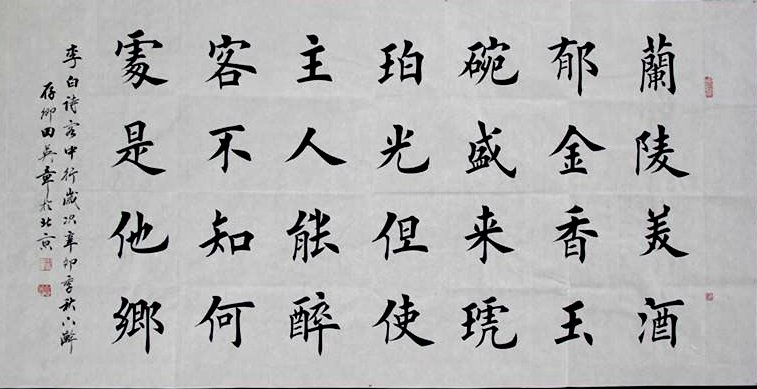 蘭陵美酒
郁金香玉
碗盛来琥
珀光但使
主人能醉
客不知何
處是他鄉
李白诗客中行歲次辛卯季秋下澣
存卿田英章於北京